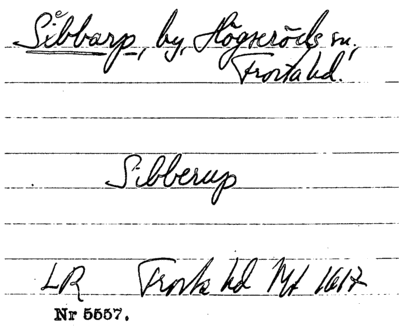 Sibbarp, by, Högseröds sn,
Frosta hd.
Sibberup
LR Frosta hd Mt 1617
Nr 5557.